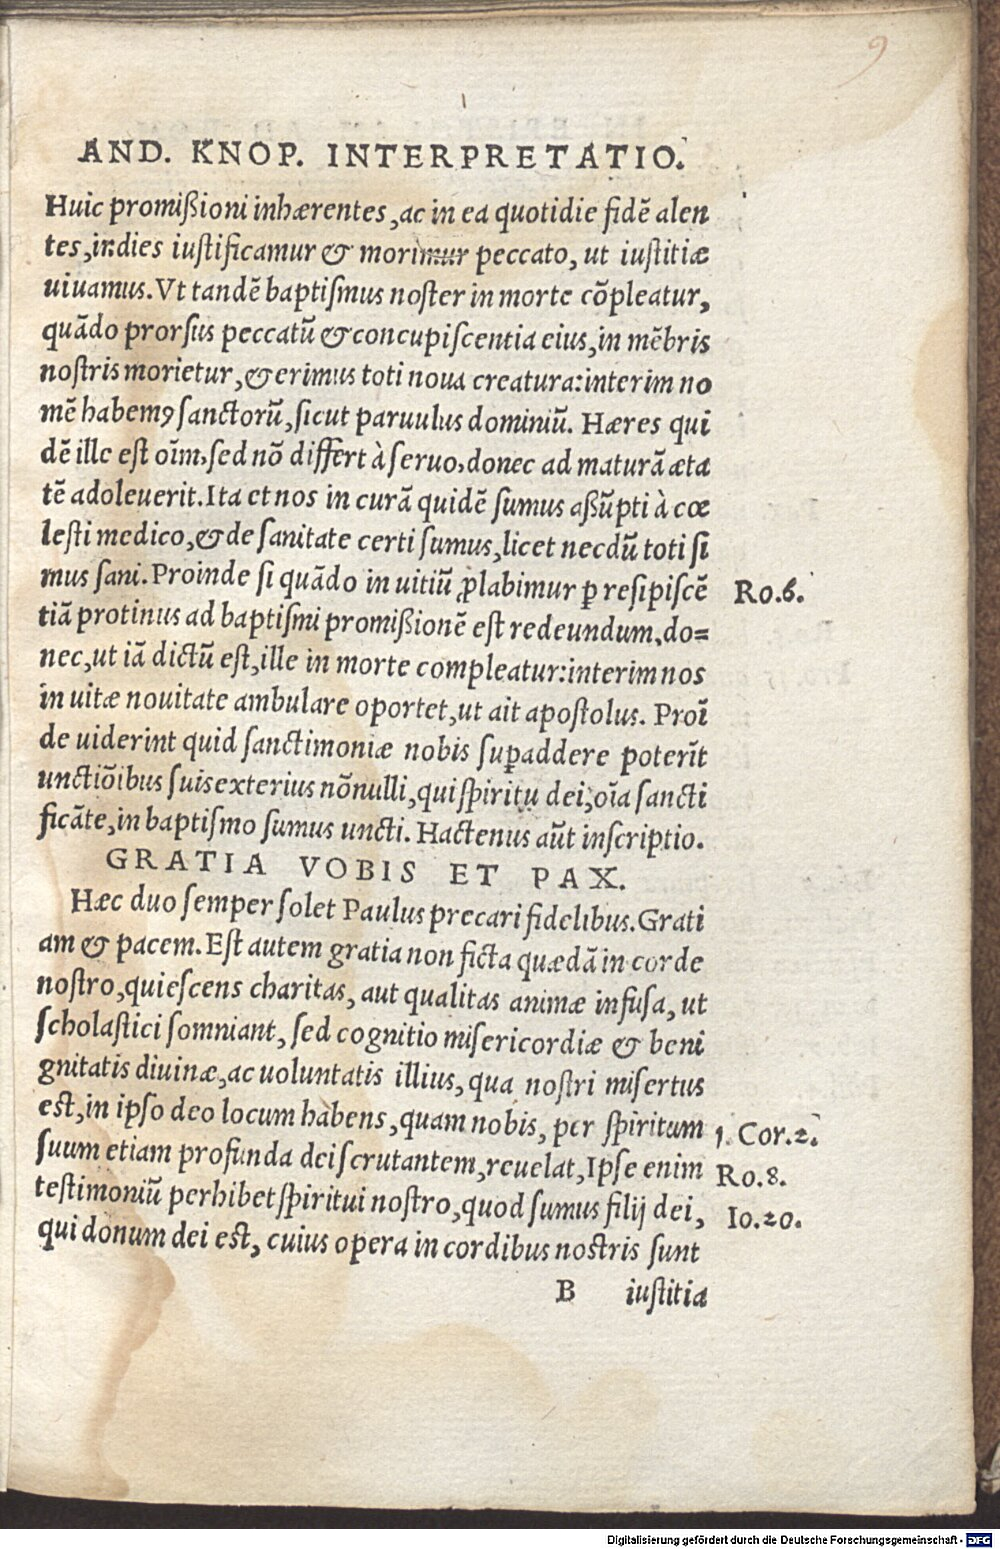 9
AND. KNOP. INTERPRETATIO.
Huic promißioni inhærentes, ac in ea quotidie fidē alen
tes, indies iuſtificamur & morimur peccato, ut iuſtitiæ
uiuamus. Vt tandē baptiſmus noſter in morte cōpleatur,
quādo prorſus peccatū & concupiſcentia eius, in mēbris
noſtris morietur, & erimus toti noua creatura: interim no
mē habemꝯ ſanctorū, ſicut paruulus dominiū. Hæres qui
dē ille eſt oīm, ſed nō differt à ſeruo, donec ad maturā æta
tē adoleuerit. Ita et nos in curā quidē ſumus aßūpti à cœ
leſti medico, & de ſanitate certi ſumus, licet necdū toti ſi
mus ſani. Proinde ſi quādo in uitiū ꝓlabimur ꝑ reſipiſcē
Ro.6.
tiā protinus ad baptiſmi promißionē eſt redeundum, do=
nec, ut iā dictū eſt, ille in morte compleatur: interim nos
in uitæ nouitate ambulare oportet, ut ait apoſtolus. Proī
de uiderint quid ſanctimoniæ nobis ſuꝑaddere poterīt
unctiōibus ſuis exterius nōnulli, qui ſpiritu dei, oīa ſancti
ficāte, in baptiſmo ſumus uncti. Hactenus aūt inſcriptio.
GRATIA VOBIS ET PAX.
Hæc duo ſemper ſolet Paulus precari fidelibus. Grati
am & pacem. Eſt autem gratia non ficta quædā in corde
noſtro, quieſcens charitas, aut qualitas animæ infuſa, ut
ſcholaſtici ſomniant, ſed cognitio miſericordiæ & beni
gnitatis diuinæ, ac uoluntatis illius, qua noſtri miſertus
eſt, in ipſo deo locum habens, quam nobis, per ſpiritum
1. Cor.2.
ſuum etiam profunda dei ſcrutantem, reuelat, Ipſe enim
Ro.8.
teſtimoniū perhibet ſpiritui noſtro, quod ſumus filij dei,
Io.20.
qui donum dei eſt, cuius opera in cordibus noſtris ſunt
B iuſtitia
Digitalisierung gefördert durch die Deutsche Forschungsgemeinschaft - DFG